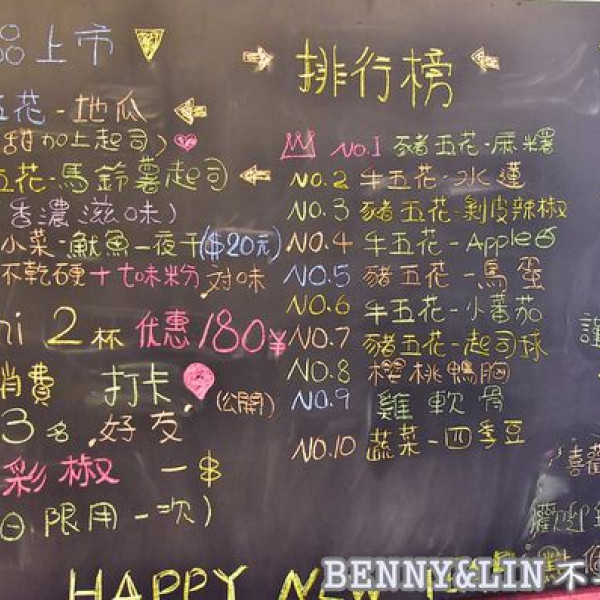 品上市
五花-地瓜
甜加上起司)
五花-馬鈴薯起司
(香濃滋味)
小菜-魷魚一夜干($20元)
不乾硬+七味粉,对味
2杯 优惠180¥
消費 打卡
(公開)
3名 好友
彩椒 一$
日限用一次)
HAPPY NEW
排行榜
NO.1 豬五花-麻糬
NO.2 牛五花-水蓮
NO.3 豬五花-剝皮辣椒
NO.4 牛五花-Apple
NO.5 豬五花-馬蛋
NO.6 牛五花-小番茄
NO.7 豬五花-起司球
NO.8 櫻桃鴨胸
NO.9 雞軟骨
NO.10 蔬菜-四季豆
喜歡
歡迎
BENNY&LIN 不